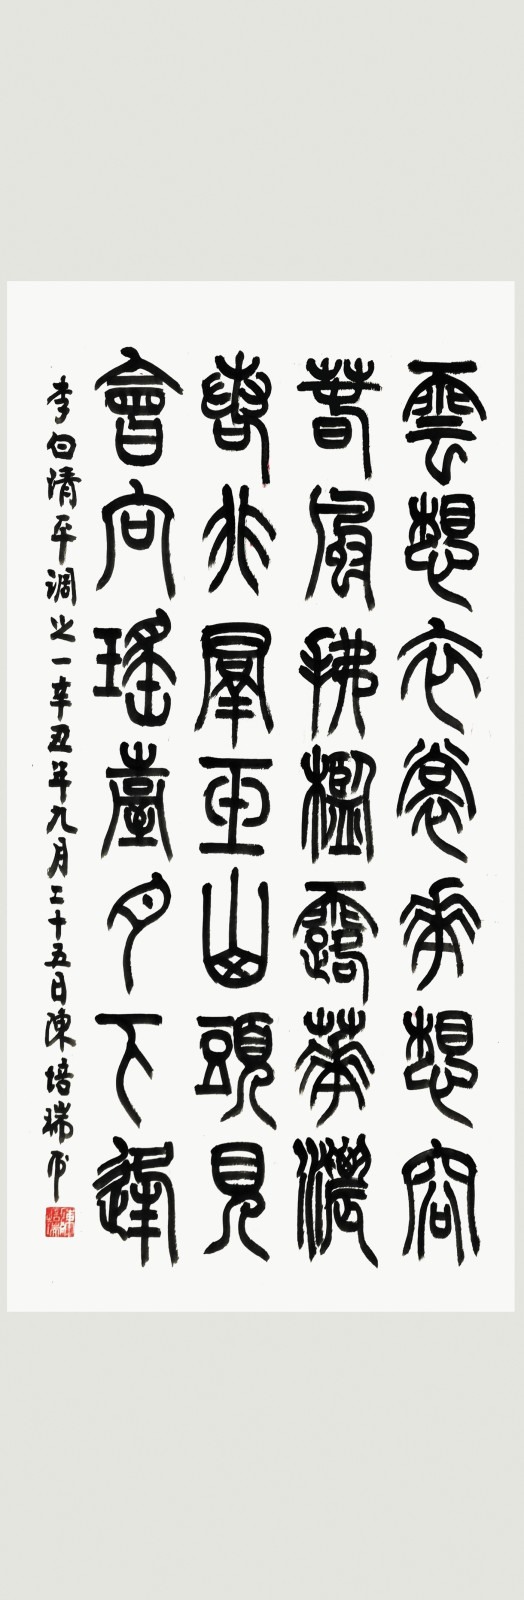 雲想衣裳花想容
春風拂檻露華濃
若非羣玉山頭見
會向瑤臺月下逢
李白清平調之一辛丑年九月二十五日陳培瑞书